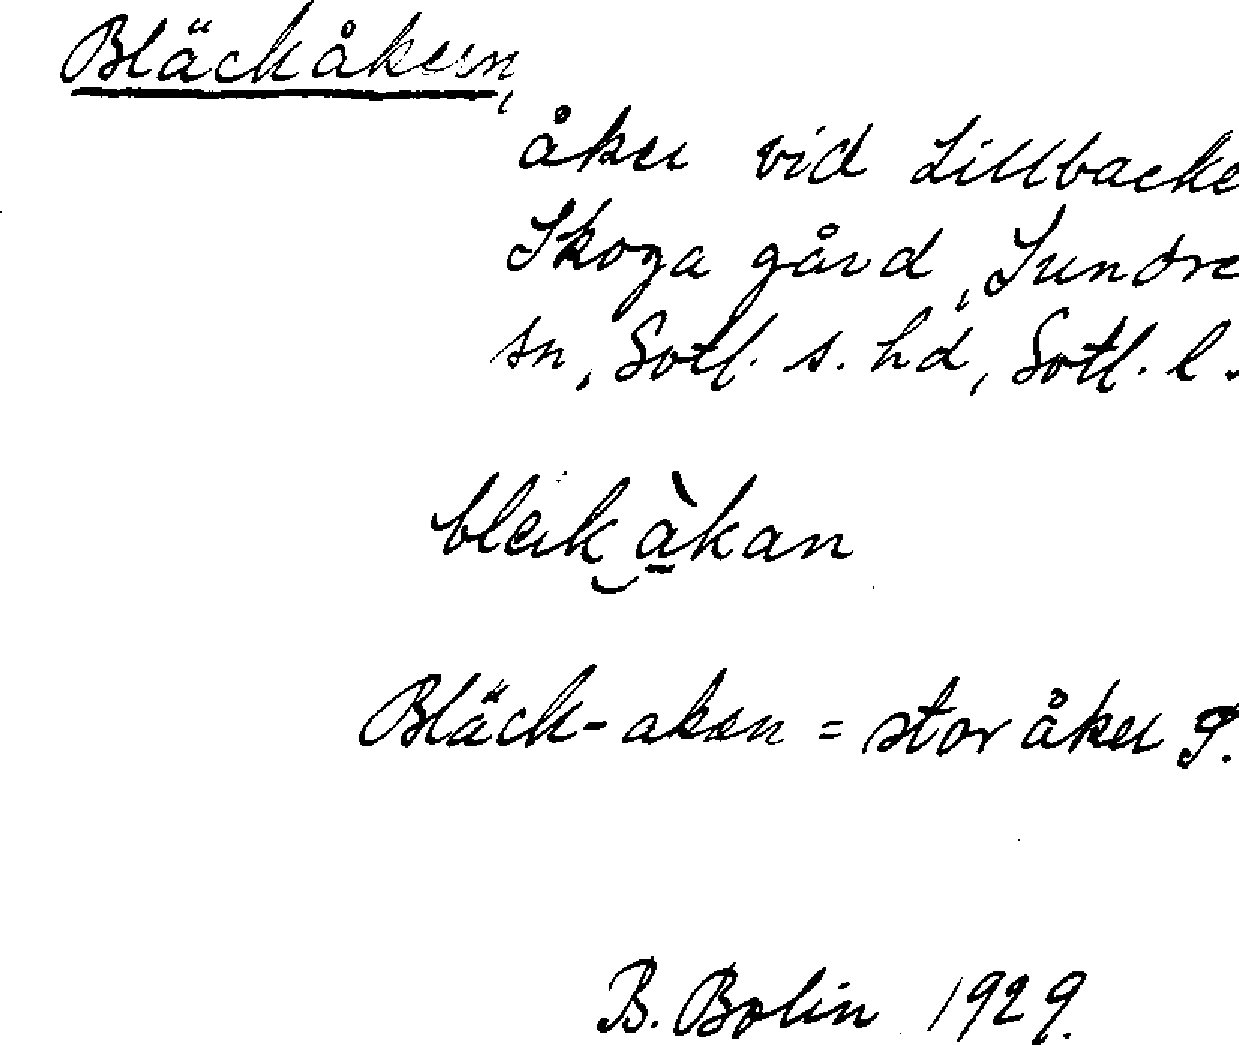 Bläckåkern,
åker vid Lillbacke
Skoga gård, Sundre
sn, Gotl. s. hd, Gotl. l.
bleik‿à̲kan
Bläck-aken = stor åker
B. Bolin 1929.